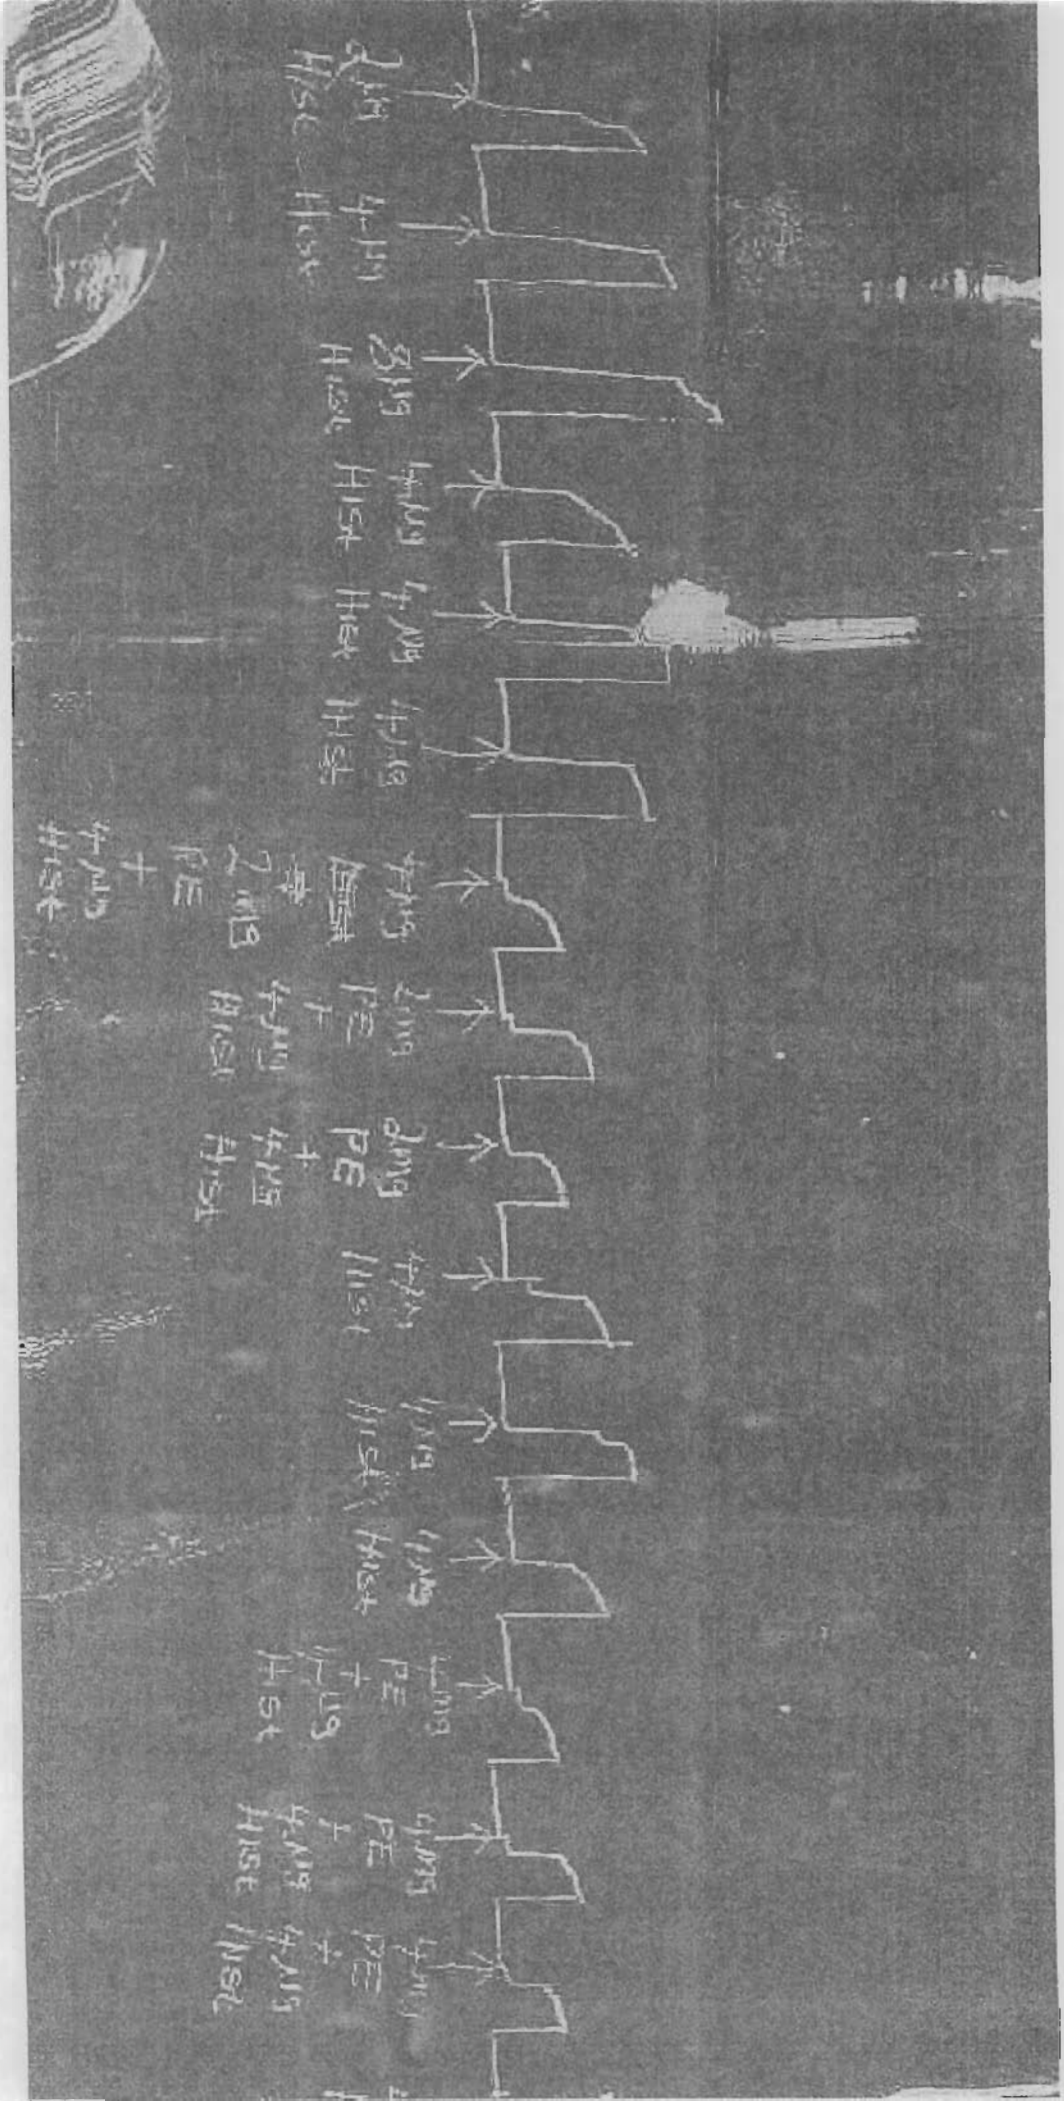 2µg
Hist
4µg
Hist
8µg
Hist
4µg
Hist
4µg
Hist
4µg
Hist
4µg
Hist
+
2mg
PE
+
4µg
Hist
2mg
PE
+
4µg
Hist
2mg
PE
+
4µg
Hist
4µ
Hist
4µg
Hist
4µg
Hist
4mg
PE
+
4µg
Hist
4mg
PE
+
4µg
Hist
4mg
PE
+
4µg
Hist